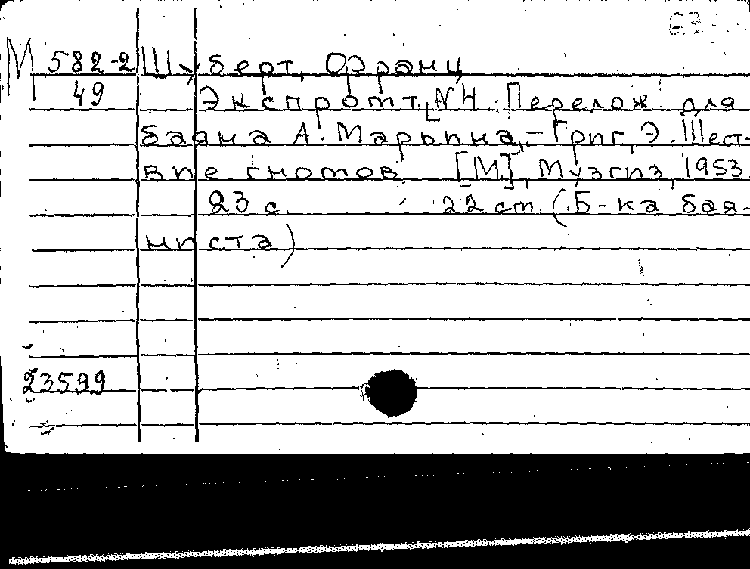 63
М 582-2 Шуберт, Франц
49 Экспромт, N4. Перелож. для
баяна А. Марьина,-Григ, Э. Шест-
вие гномов [М], Музгиз, 1953.
23 с. 22 см. (Б-ка бая-
ниста)
23599